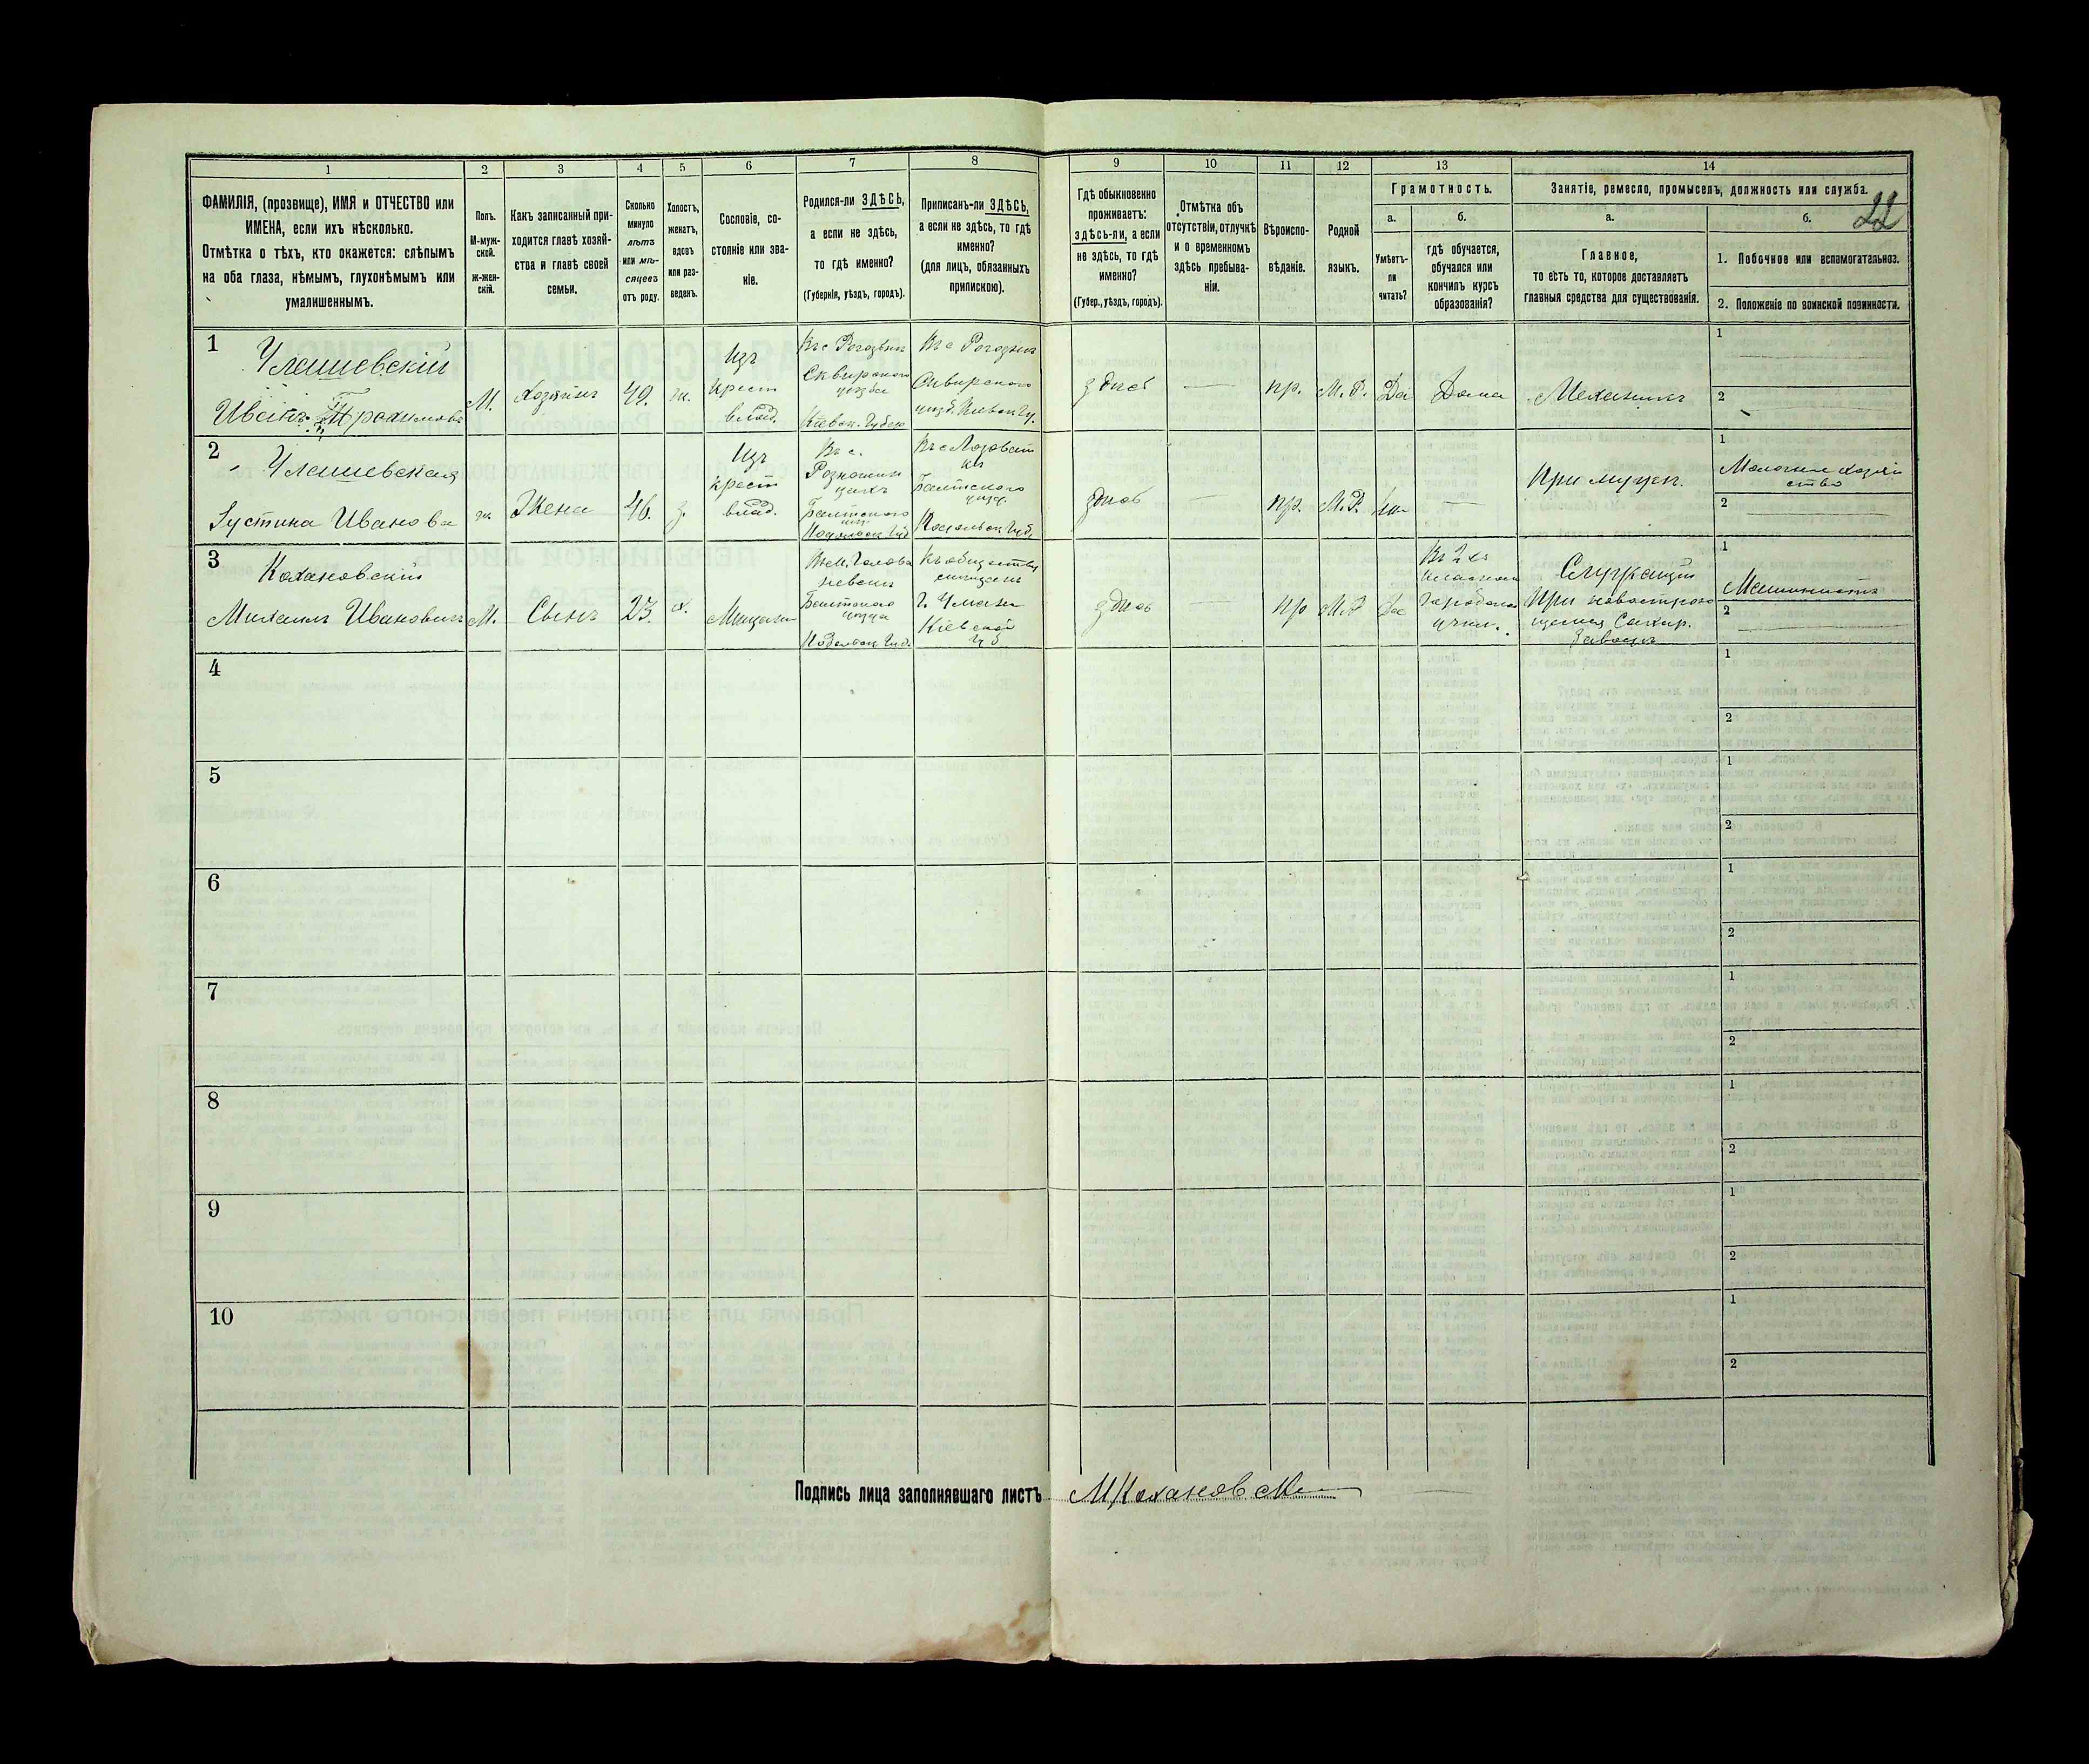 1 2 3 4 5 6 7 8 9 10 11 12 13 14
ФАМИЛІЯ, (прозвище), ИМЯ и ОТЧЕСТВО или
ИМЕНА, если ихъ нѣсколько.
Отмѣтка о тѣхъ, кто окажется: слѣпымъ
на оба глаза, нѣмымъ, глухонѣмымъ или
умалишеннымъ.
Полъ.
М-муж-
ской.
ж-жен-
скій.
Какъ записанный при-
ходится главѣ хозяй-
ства и главѣ своей
семьи.
Сколько
минуло
лѣтъ
или мѣ-
сяцевъ
отъ роду.
Холостъ,
женатъ,
вдовъ
или раз-
веденъ.
Сословіе, со-
стояніе или зва-
ніе.
Родился-ли ЗДѢСЬ,
а если не здѣсь,
то гдѣ именно?
(Губернія, уѣздъ, городъ).
Приписанъ-ли ЗДѢСЬ,
а если не здѣсь, то гдѣ
именно?
(для лицъ, обязанныхъ
припискою).
Гдѣ обыкновенно
проживаетъ:
здѣсь-ли, а если
не здѣсь, то гдѣ
именно?
(Губер., уѣздъ, городъ).
Отмѣтка объ
отсутствіи, отлучкѣ
и о временномъ
здѣсь пребыва-
ніи.
Вѣроиспо-
вѣданіе.
Родной
языкъ.
Грамотность.
а.
Умѣетъ-
ли
читать?
б.
гдѣ обучается,
обучался или
кончилъ курсъ
образованія?
Занятіе, ремесло, промыселъ, должность или служба.
22
а.
Главное,
то есть то, которое доставляетъ
главныя средства для существованія.
б.
1. Побочное или вспомогательноэ.
2. Положеніе по воинской повинности.
1
Иванъ
М.
Хозяинъ
49.
ж.
Изъ
крест
влад.
Въ с
Сквирского
уѣзда
Кіевск. Губер
Въ с
Сквирского
уѣзд. Кіевск Гу.
здѣсь
—
пр.
М. Р.
Да
Дома
Механикъ
1
2
2
Иванова
ж
Жена
46.
з.
Изъ
крест
влад.
Въ с.
Балтского
Подольск Губ
Балтского
уѣзд.
Подольск Губ.
здѣсь
—
пр.
М. Р.
—
При мужѣ.
1
Молочное хозяй
ство
2
3
Кохановскій
Михаилъ Ивановичъ
М.
Сынъ
23.
х.
Мѣщанин
Въ м. Голова
невскѣ
Балтского
уѣзда
Подольск Губ.
Къ обществу
мѣщанъ
г. Умани
Кіевской
Губ
здѣсь
—
пр
М. Р
Да
Въ 2 хъ
классном
Городском
учил.
Служащій
При
Сахар.
Заводѣ
1
Машинистъ
2
4
1
2
5
1
2
6
1
2
7
1
2
8
1
2
9
1
2
10
1
2
Подпись лица заполнявшаго листъ МКохановскій